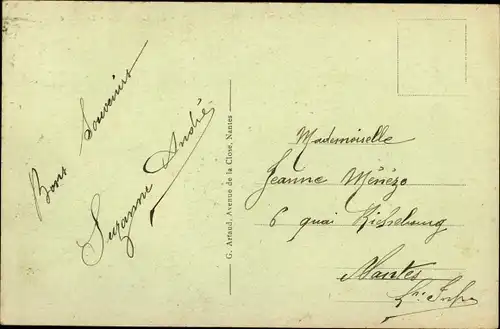 Bons Souvenirs
Suzanne André
G. Artaud, Avenue de la Close, Nantes
Mademoiselle
Jeanne Ménézo
6 quai Richebourg
Nantes